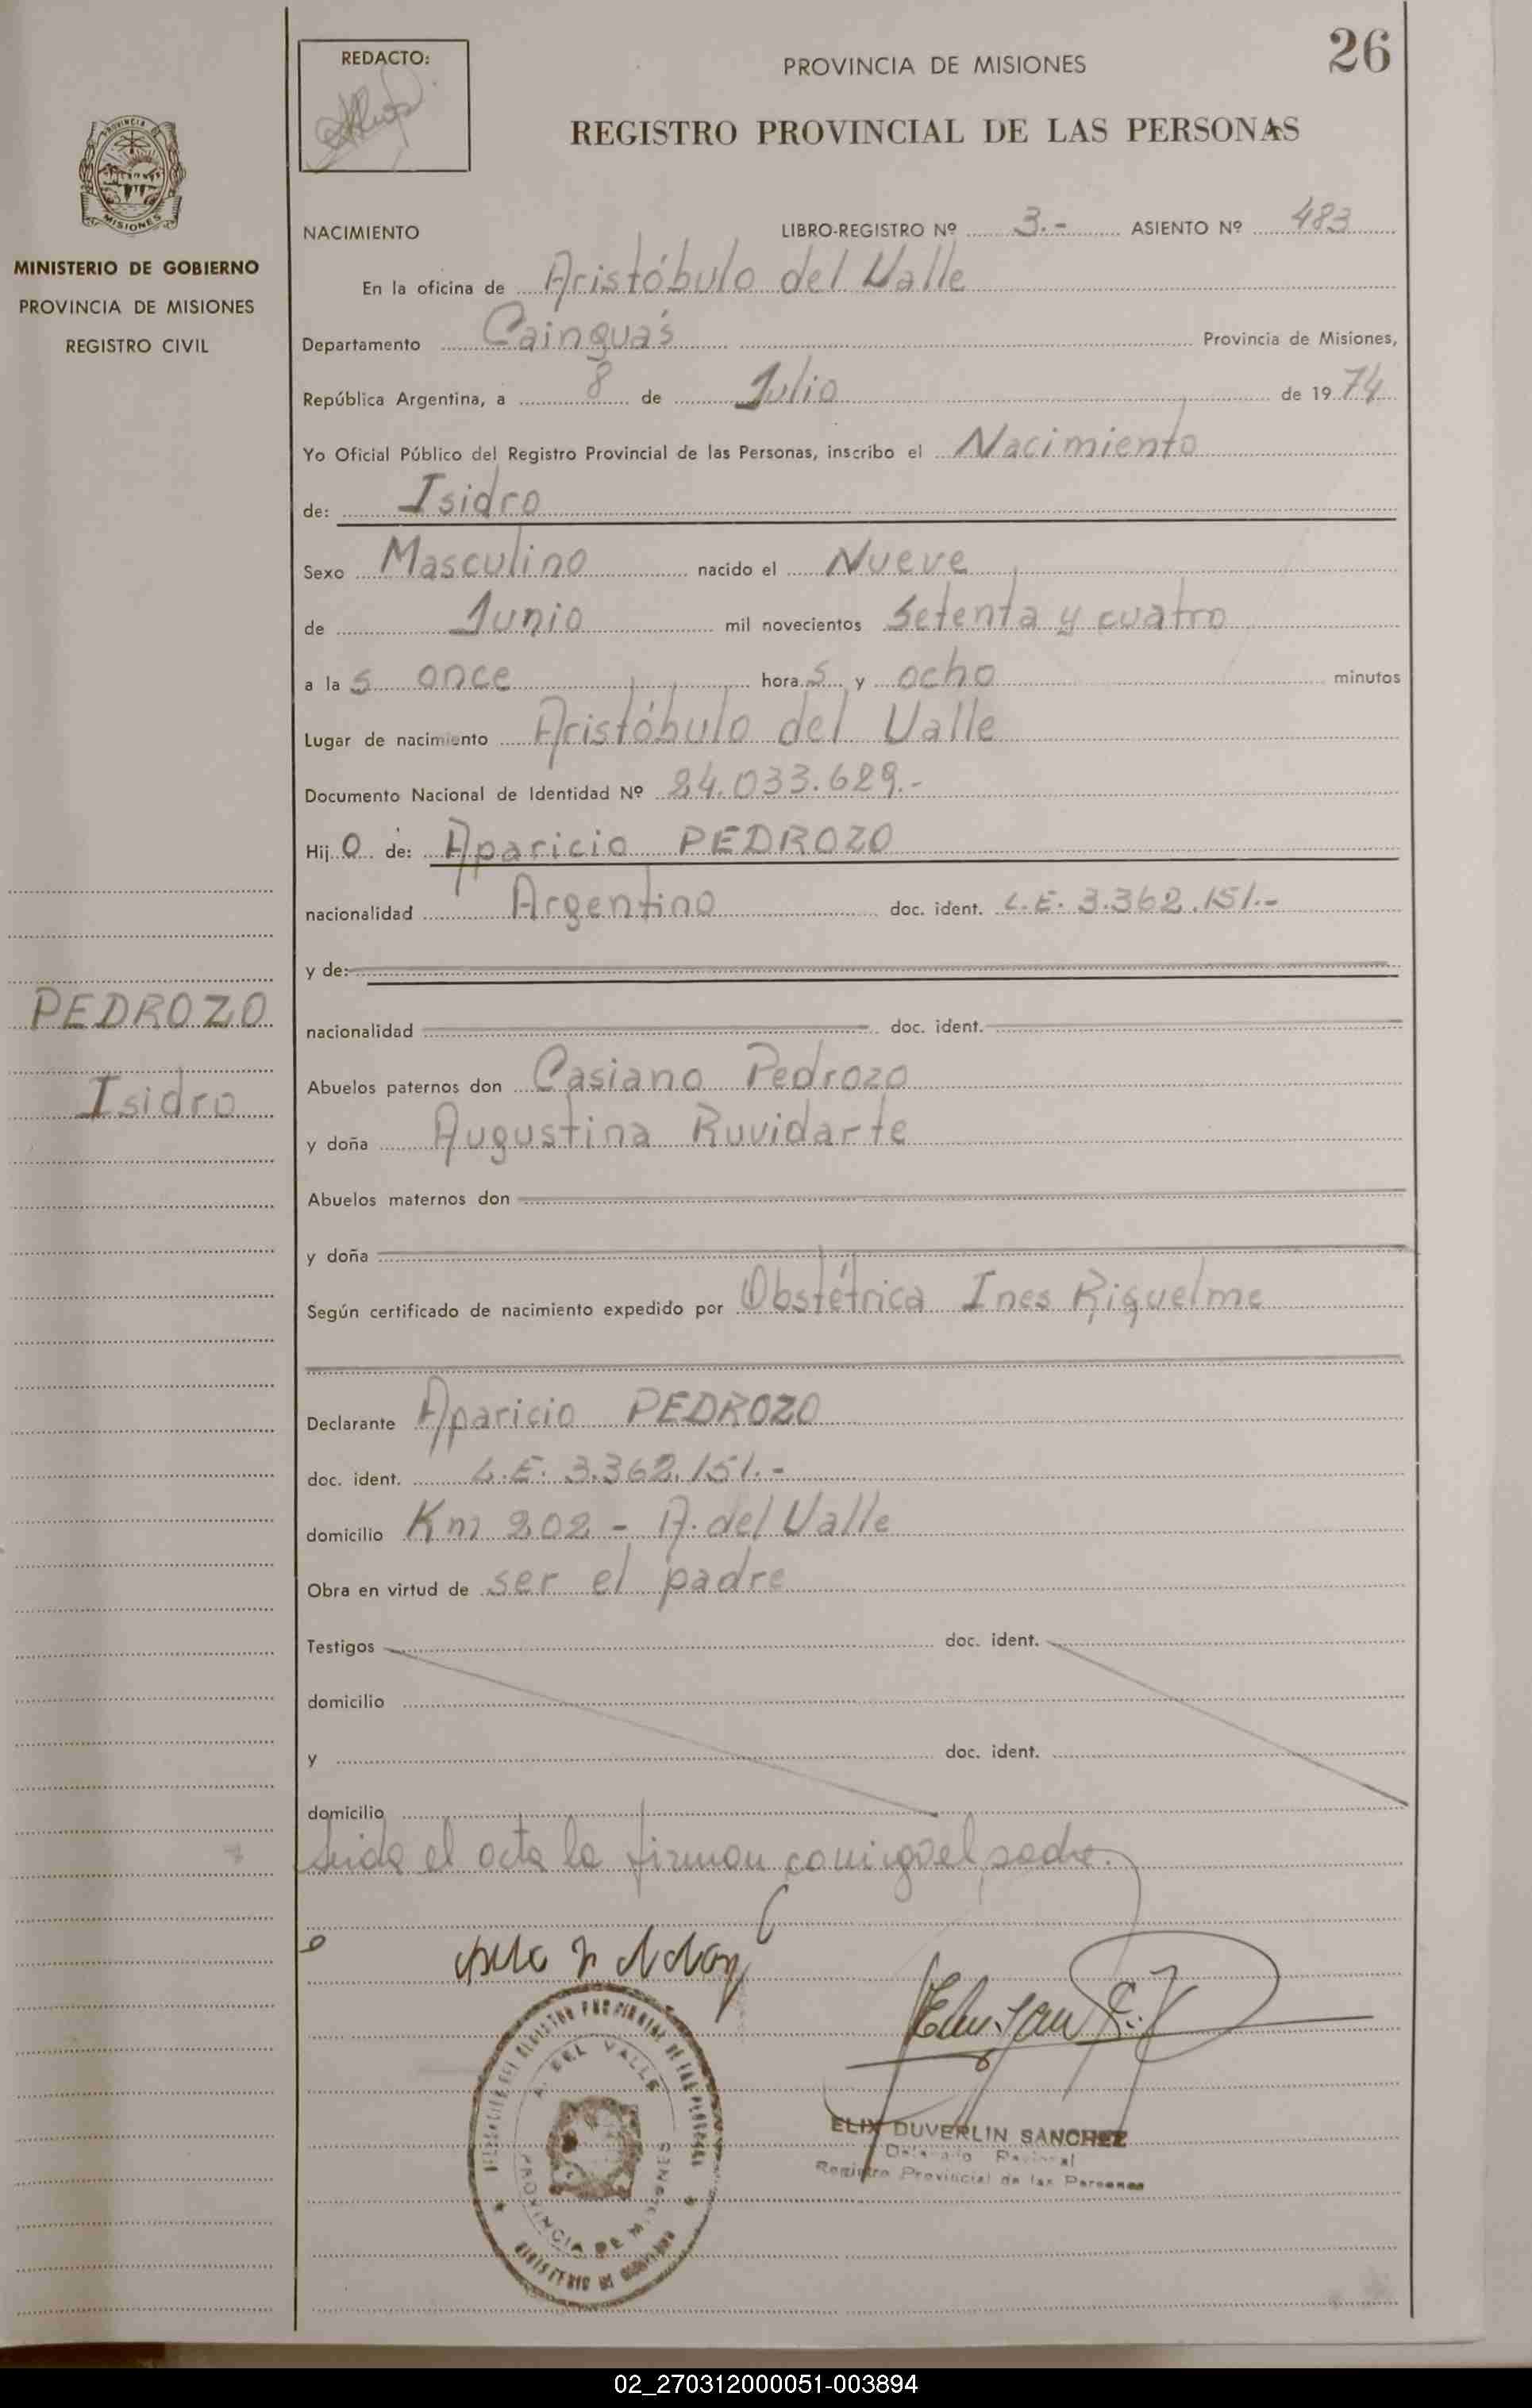 26
REDACTO:
PROVINCIA DE MISIONES
REGISTRO PROVINCIAL DE LAS PERSONAS
MINISTERIO DE GOBIERNO
PROVINCIA DE MISIONES
REGISTRO CIVIL
NACIMIENTO LIBRO-REGISTRO Nº 3.- ASIENTO Nº 483
En la oficina de Aristóbulo del Valle
Departamento Cainguás Provincia de Misiones,
República Argentina, a 8 de Julio de 1974
Yo Oficial Público del Registro Provincial de las Personas, inscribo el Nacimiento
de: Isidro
Sexo Masculino nacido el Nueve
de Junio mil novecientos Setenta y cuatro
a las once horas y ocho minutos
Lugar de nacimiento Aristóbulo del Valle
Documento Nacional de Identidad Nº 24.033.629.-
Hijo de: Aparicio PEDROZO
nacionalidad Argentino doc. ident. L.E. 3.362.151.-
y de:
PEDROZO
nacionalidad doc. ident.
Abuelos paternos don Casiano Pedrozo
Isidro
y doña Augustina Ruvidarte
Abuelos maternos don
y doña
Según certificado de nacimiento expedido por Obstétrica Ines Riquelme
Declarante Aparicio PEDROZO
doc. ident. L.E. 3.362.151.-
domicilio Km 202 - A. del Valle
Obra en virtud de ser el padre
Testigos doc. ident.
domicilio
y doc. ident.
domicilio
Leida el acta la firman conmigo el padre.
A. DEL VALLE
PROVINCIA DE MISIONES
MINISTERIO DE GOBIERNO
ELIX DUVERLIN SANCHEZ
Registro Provincial de las Personas
02_270312000051-003894